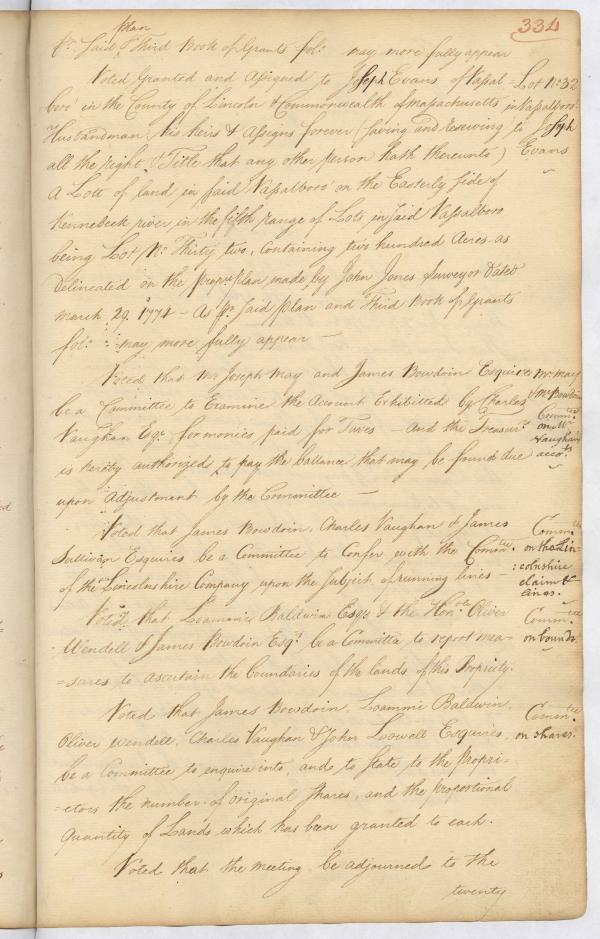 334
plan
pr. Said Third Book of Grants fol: may more fully appear
Voted Granted and Assigned to Joseph Evans of Vassal=
boro' in the County of Lincoln & Commonwealth of Massachusetts
Husbandman, his heirs & Assigns forever (saving and reserving to
all the right & Title that any other person hath thereunto)
Lot No. 32
in Vassalboro'
Joseph
Evans
A Lott of land in said Vassalboro' on the Easterly side of
Kennebeck river in the fifth range of Lots, in said Vassalboro
being Lot No. Thirty two, Containing two hundred Acres as
Delineated on the propr. plan made by John Jones Surveyor Dated
march 29. 1774 - As pr. said plan and Third Book of Grants
fol: may more fully appear —
Voted that Mr Joseph May and James Bowdoin Esquires
be a Committee to Examine the Account Exhibitted by Charles
Vaughan Esqr. for monies paid for Taxes - And the Treasr.
is hereby authorized to pay the ballance that may be found due
upon adjustment by the Committee —
Mr. May
& Mr Bowdoin
Commtee
on Mr
Vaughan's
accots
Voted that James Bowdoin, Charles Vaughan & James
Sullivan Esquires be a Committee to Confer with the Commtee.
of the Lincolnshire Company upon the subject of running lines -
Commtee
on the Lin
:colnshire
claim &
lines.
Voted, that Loammi Baldwin Esqr & the Honble Oliver
Wendell & James Bowdoin Esqr. be a Committee to report mea=
=sures to ascertain the boundaries of the lands of this Propriety.
Commtee
on bounds.
Voted that James Bowdoin, Loammi Baldwin,
Oliver Wendell, Charles Vaughan & John Lowell Esquires,
be a Committee to enquire into, and to State to the Propri=
=etors the number of original shares, and the proportional
Quantity of Lands which has been granted to each.
Commtee
on shares.
Voted that the meeting be adjourned to the
twenty